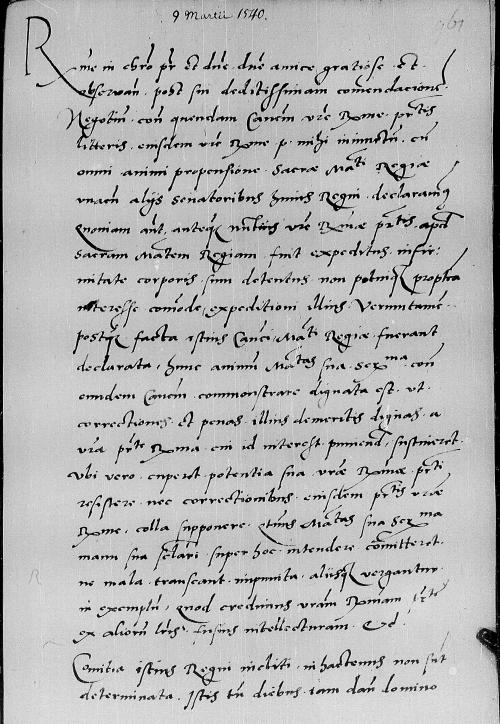 9 Martii 1540.
961
Rme in chro pr et dne dne amice gratiose et
observan. post sui deditissimam comendacione.
Negotiu. con quendam Canem vre Rme prtis
litteris. eiusdem vre Rme p. mihi iniunctu. cu
omni animi propensione. Sacrae Mati Regiae
unacu alijs Senatoribus huius Regni declaravi
quoniam ant. anteq nuntius vre Rmae prtis. apd
Sacram Matem Regiam. fuit expeditus. infir:
mitate corporis. sum detentus. non potui proptea
interesse comode expeditioni illius. Veruntame.
postq facta istius Canci Mati Regiae. fuerant
declarata. hunc animu Matas sua Serma con
eundem Canem. commonstrare dignata est. ut.
correctiones. et penas. illius demeritis dignas. a
vra prte Rma. cui id interest. puniend. sustineret.
Ubi vero. cuperet potentia sua. vrae Rmae prti
resistere. nec correctionibus. eiusdem prtis vrae
Rme. colla supponere. Matas sua Serma
manu sua super hoc. intendere comitteret.
ne mala. transeant. impunita. alijsq vergantur.
in exemplu. quod credimus vram Rmam prte
ex alioru lris. fusius intellecturam. Et.
Comitia istius Regni incliti. in hactenus non sut
determinata. Istis tn diebus. iam dan domino